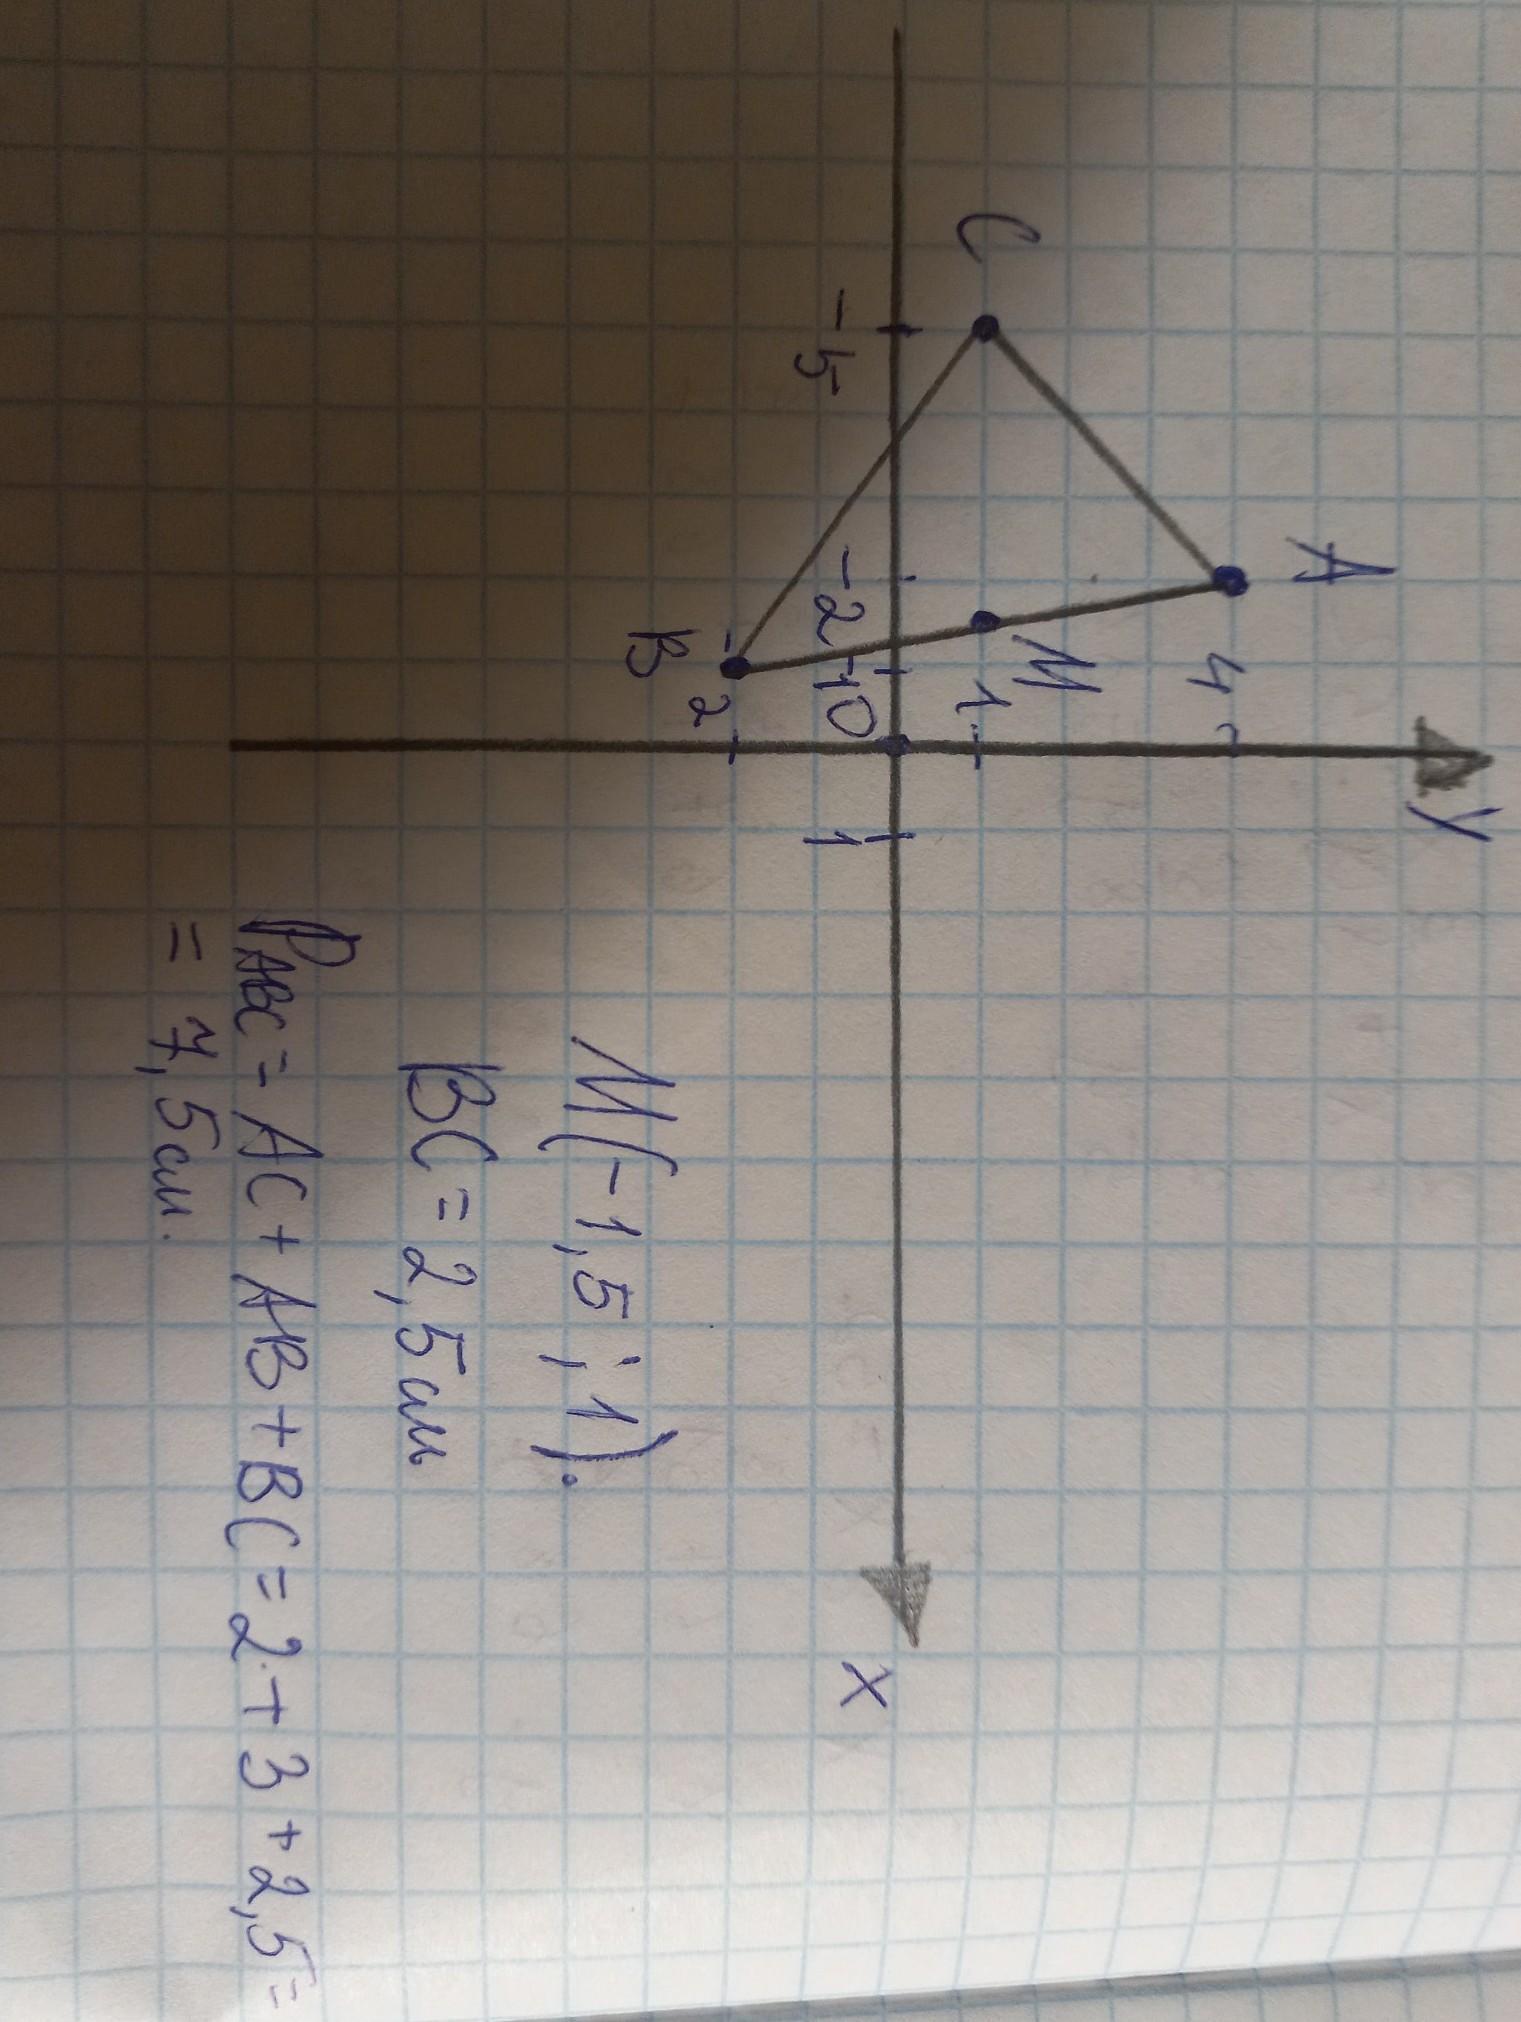 y
A
4
C
M
1
-5
-2
-1
0
1
x
-2
B
M(-1,5 ; 1).
BC = 2,5см
PABC = AC + AB + BC = 2 + 3 + 2,5 =
= 7,5см.